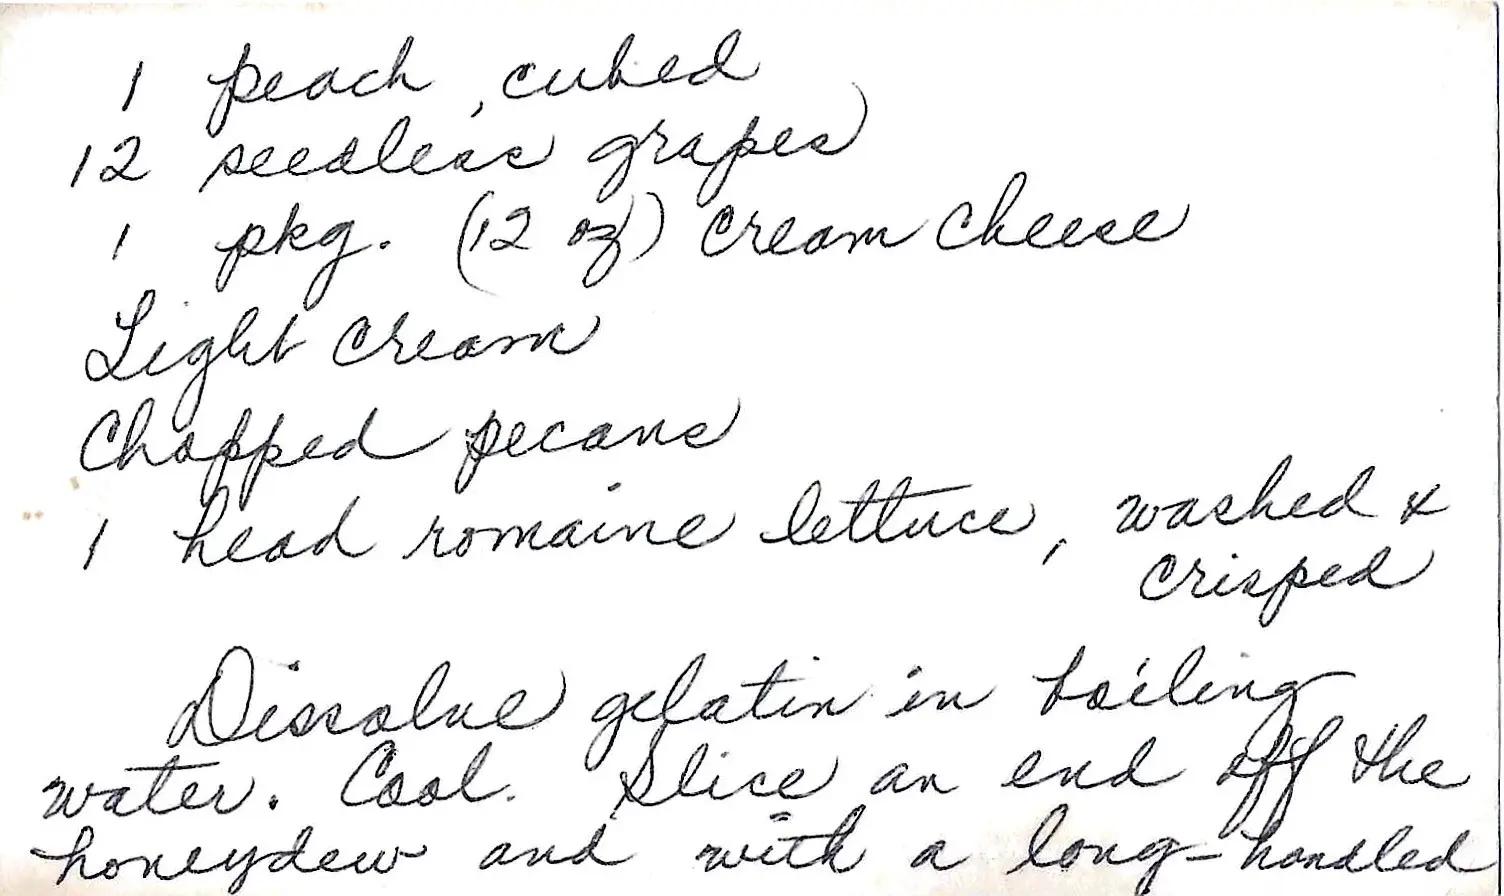 1 peach, cubed
12 seedless grapes
1 pkg. (12 oz) cream cheese
Light cream
Chopped pecans
1 head romaine lettuce, washed &
crisped
Dissolve gelatin in boiling
water. Cool. Slice an end off the
honeydew and with a long-handled